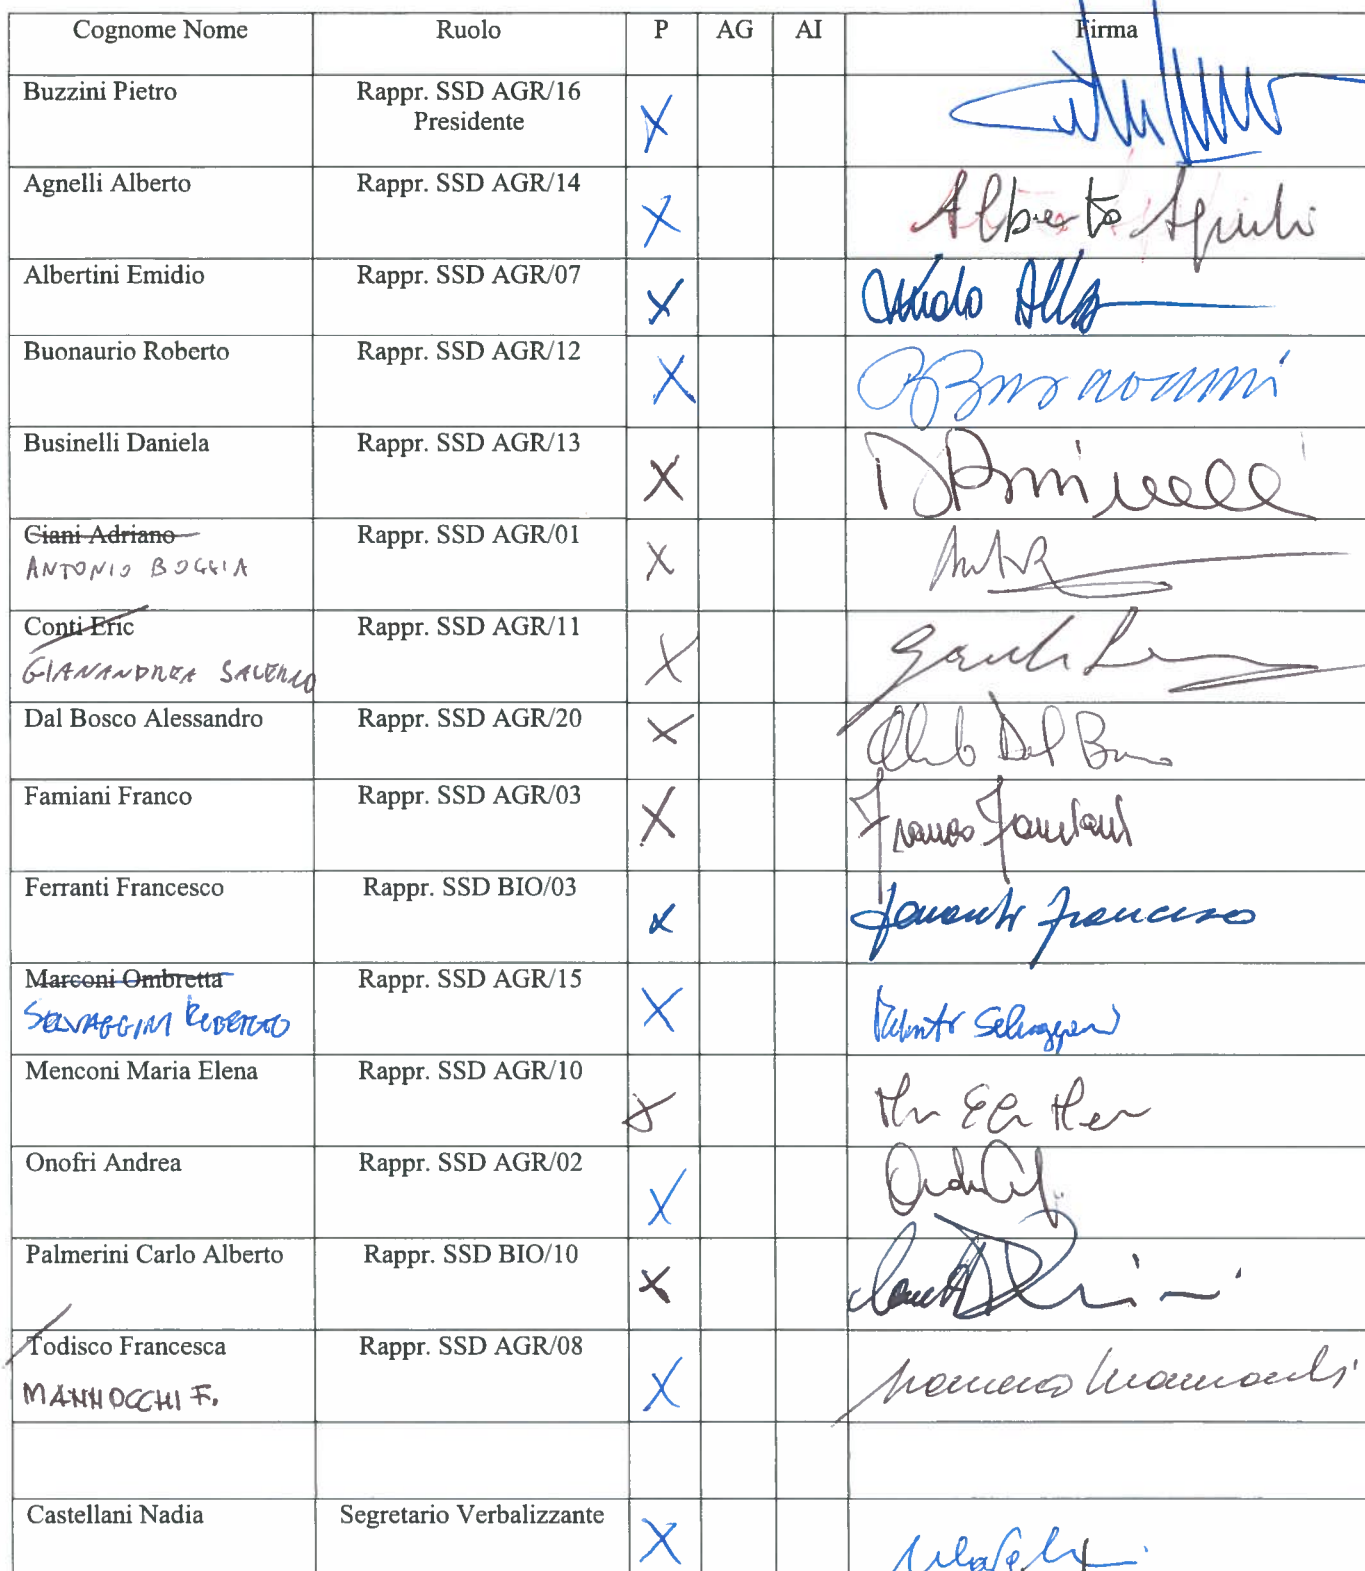 Cognome Nome Ruolo P AG AI Firma
Buzzini Pietro Rappr. SSD AGR/16 X
Presidente
Agnelli Alberto Rappr. SSD AGR/14 X Alberto Agnelli
Albertini Emidio Rappr. SSD AGR/07 X
Buonaurio Roberto Rappr. SSD AGR/12 X
Businelli Daniela Rappr. SSD AGR/13 X DBusinelli
Ciani Adriano Rappr. SSD AGR/01 X
ANTONIO BOGGIA
Conti Eric Rappr. SSD AGR/11 X
GIANANDREA SALERNO
Dal Bosco Alessandro Rappr. SSD AGR/20 X
Famiani Franco Rappr. SSD AGR/03 X Franco Famiani
Ferranti Francesco Rappr. SSD BIO/03 X Ferranti Francesco
Marconi Ombretta Rappr. SSD AGR/15 X
SELVAGGINI ROBERTO Roberto Selvaggini
Menconi Maria Elena Rappr. SSD AGR/10 X
Onofri Andrea Rappr. SSD AGR/02 X
Palmerini Carlo Alberto Rappr. SSD BIO/10 X
Todisco Francesca Rappr. SSD AGR/08 X
MANNOCCHI F. Francesco Mannocchi
Castellani Nadia Segretario Verbalizzante X